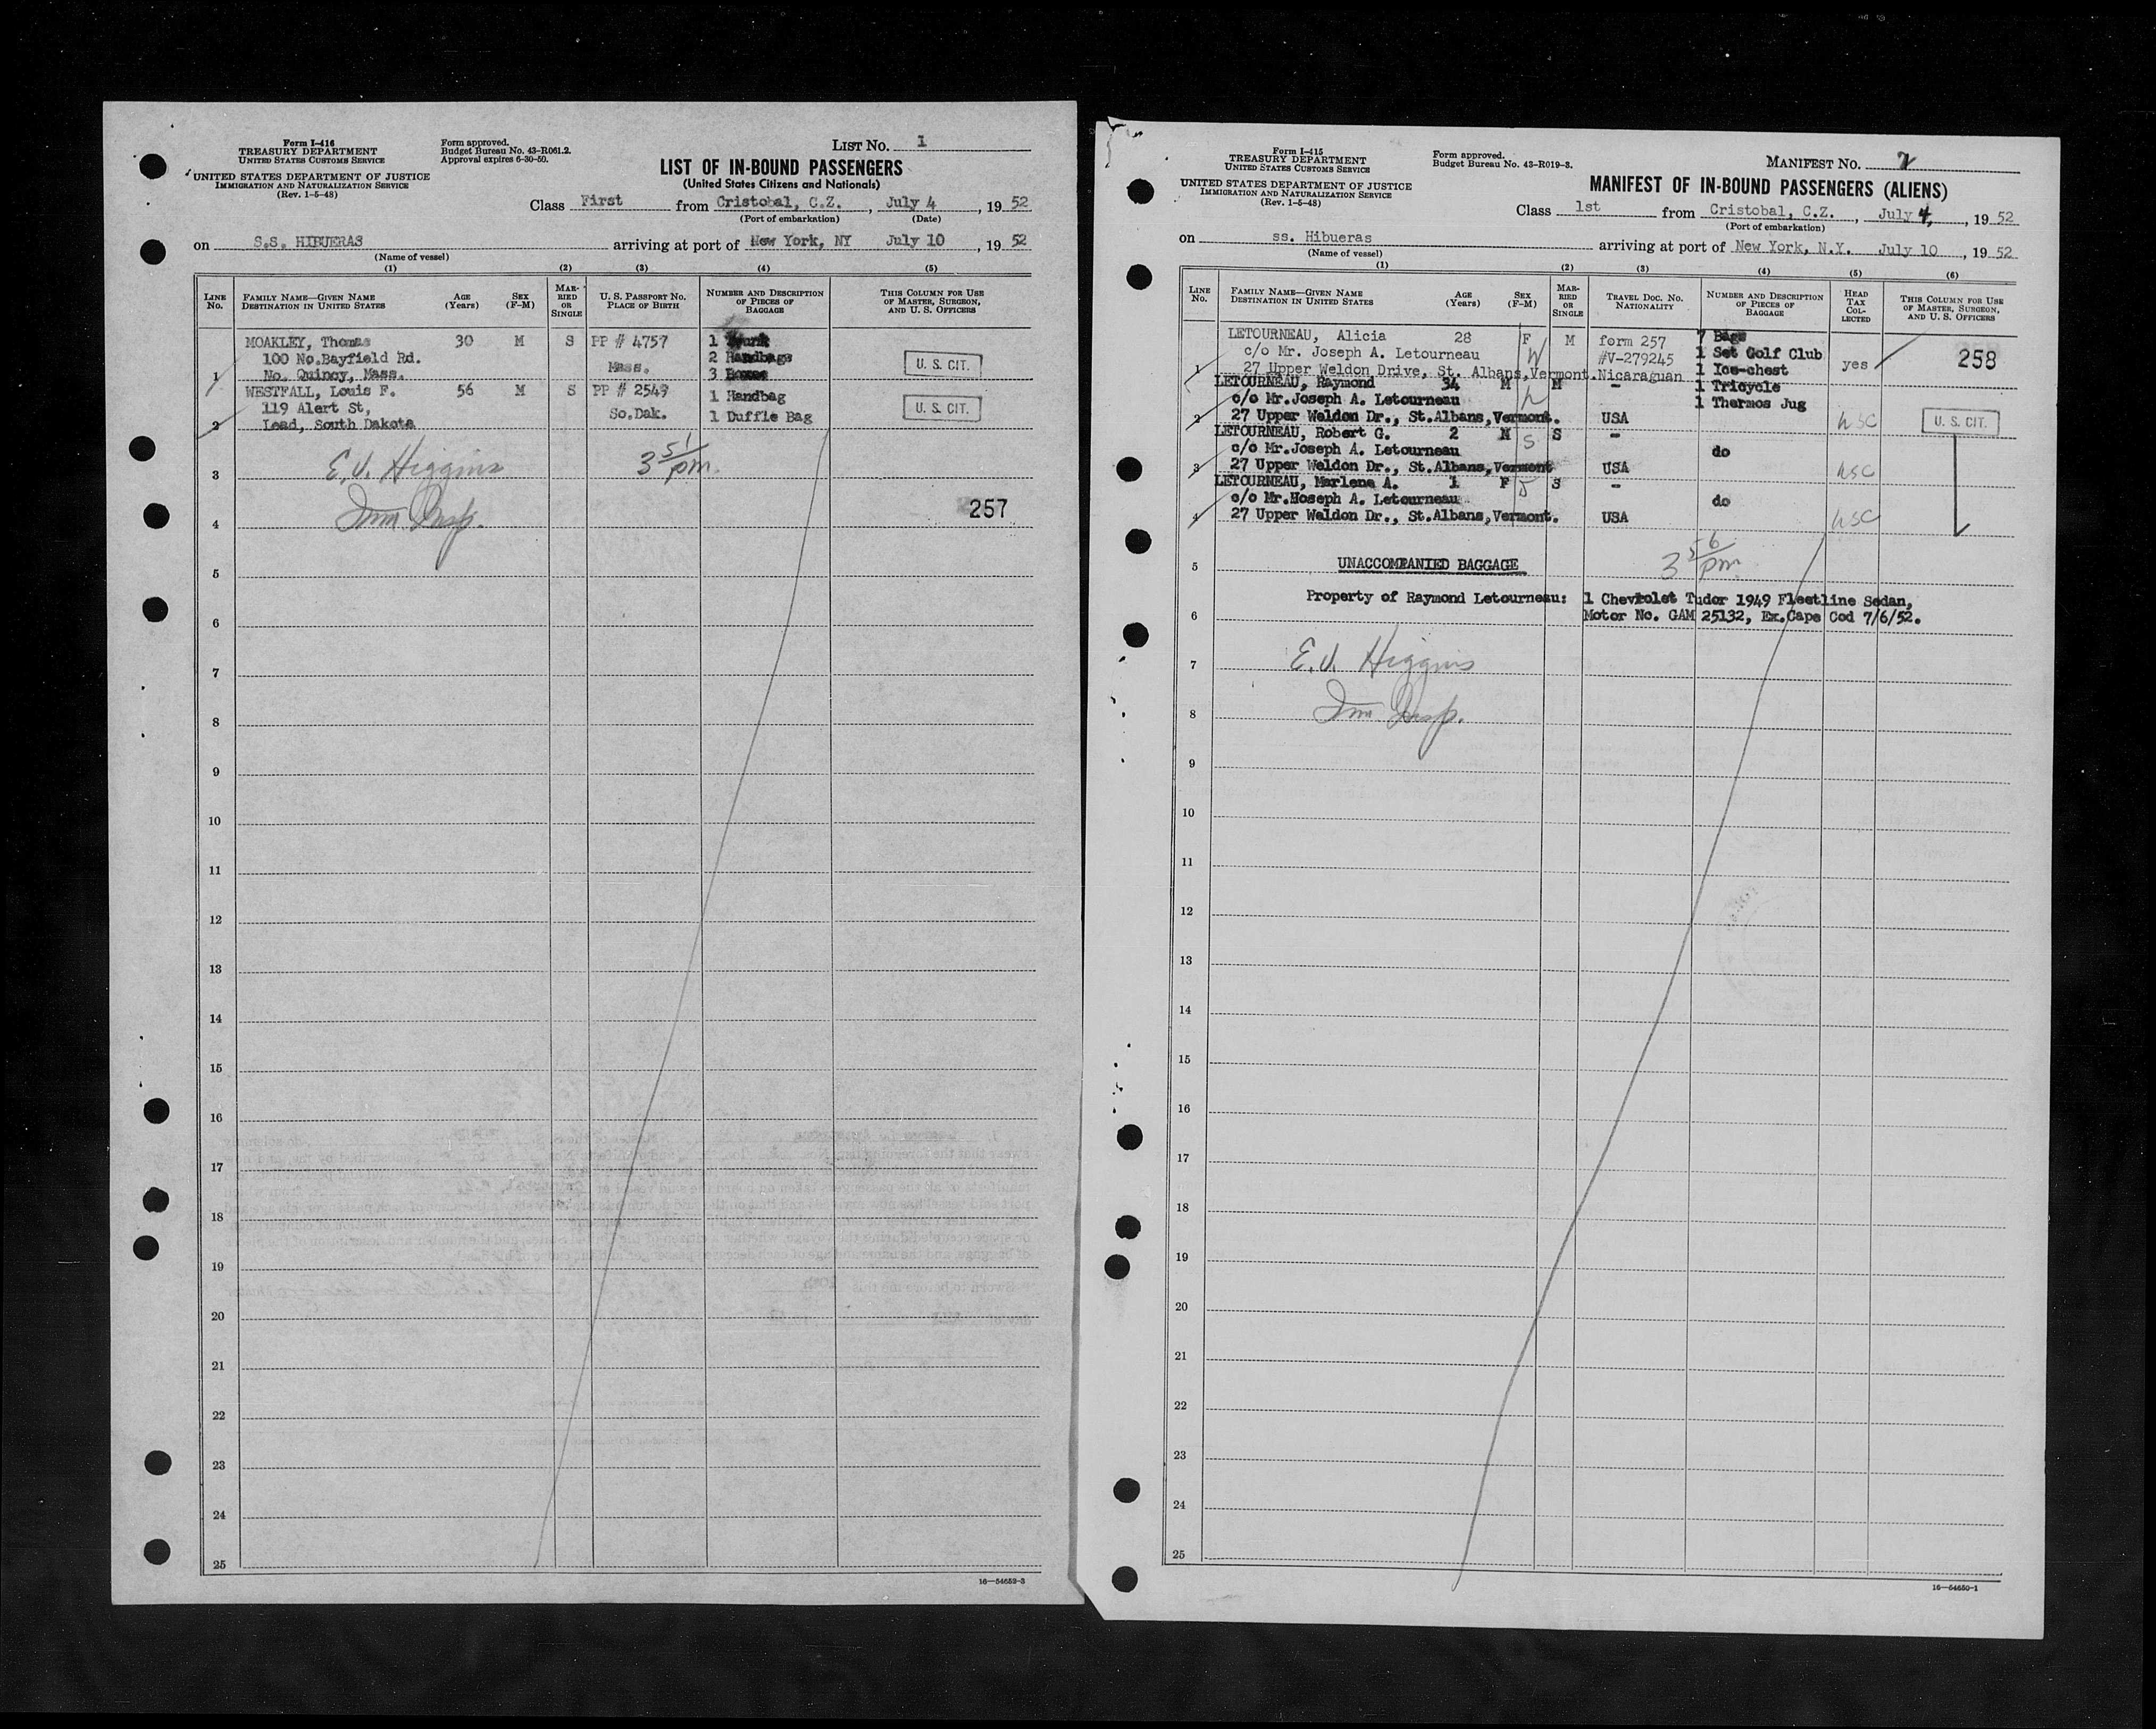 Form I-416
TREASURY DEPARTMENT
UNITED STATES CUSTOMS SERVICE
UNITED STATES DEPARTMENT OF JUSTICE
IMMIGRATION AND NATURALIZATION SERVICE
(Rev. 1-5-48)
Form approved.
Budget Bureau No. 43-R061.2.
Approval expires 6-30-50.
LIST No. 1
LIST OF IN-BOUND PASSENGERS
(United States Citizens and Nationals)
Class First from Cristobal, C.Z., July 4, 1952
(Port of embarkation) (Date)
on S.S. HIBUERAS arriving at port of New York, NY July 10, 1952
(Name of vessel)
(1) (2) (3) (4) (5)
LINE No. FAMILY NAME—GIVEN NAME DESTINATION IN UNITED STATES AGE (Years) SEX (F-M) MARRIED OR SINGLE U. S. PASSPORT NO. PLACE OF BIRTH NUMBER AND DESCRIPTION OF PIECES OF BAGGAGE THIS COLUMN FOR USE OF MASTER, SURGEON, AND U. S. OFFICERS
MOAKLEY, Thomas 30 M S PP # 4757 1 Trunk
100 No.Bayfield Rd. Mass. 2 Handbags U. S. CIT.
1 No. Quincy, Mass. 3 Boxes
WESTFALL, Louis F. 56 M S PP # 2549 1 Handbag
119 Alert St, So.Dak. 1 Duffle Bag U. S. CIT.
2 Lead, South Dakota
3 E.J. Higgins 3 51/pm.
4 Imm Insp. 257
5
6
7
8
9
10
11
12
13
14
15
16
17
18
19
20
21
22
23
24
25
16—54652-3
Form I-415
TREASURY DEPARTMENT
UNITED STATES CUSTOMS SERVICE
UNITED STATES DEPARTMENT OF JUSTICE
IMMIGRATION AND NATURALIZATION SERVICE
(Rev. 1-5-48)
Form approved.
Budget Bureau No. 43-R019-3.
MANIFEST No. 2
MANIFEST OF IN-BOUND PASSENGERS (ALIENS)
Class 1st from Cristobal, C.Z., July 4, 1952
(Port of embarkation)
on ss. Hibueras arriving at port of New York, N.Y. July 10, 1952
(Name of vessel)
(1) (2) (3) (4) (5) (6)
LINE No. FAMILY NAME—GIVEN NAME DESTINATION IN UNITED STATES AGE (Years) SEX (F-M) MARRIED OR SINGLE TRAVEL DOC. NO. NATIONALITY NUMBER AND DESCRIPTION OF PIECES OF BAGGAGE HEAD TAX COLLECTED THIS COLUMN FOR USE OF MASTER, SURGEON, AND U. S. OFFICERS
LETOURNEAU, Alicia 28 F M form 257 7 Bags
c/o Mr. Joseph A. Letourneau W #V-279245 1 Set Golf Club 258
1 27 Upper Weldon Drive, St. Albans,Vermont.Nicaraguan 1 Ice-chest yes
LETOURNEAU, Raymond 34 M M - 1 Tricycle
c/o Mr.Joseph A. Letourneau 1 Thermos Jug
2 27 Upper Weldon Dr., St.Albans,Vermont. USA USC U. S. CIT.
LETOURNEAU, Robert G. 2 M S S -
c/o Mr.Joseph A. Letourneau do
3 27 Upper Weldon Dr., St.Albans,Vermont USA USC
LETOURNEAU, Marlene A. 1 F S S -
c/o Mr.Hoseph A. Letourneau do
4 27 Upper Weldon Dr., St.Albans,Vermont. USA USC
5 UNACCOMPANIED BAGGAGE 3 56/pm.
Property of Raymond Letourneau: 1 Chevrolet Tudor 1949 Fleetline Sedan,
6 Motor No. GAM 25132, Ex.Cape Cod 7/6/52.
7 E.J. Higgins
8 Imm Insp.
9
10
11
12
13
14
15
16
17
18
19
20
21
22
23
24
25
16—54650-1